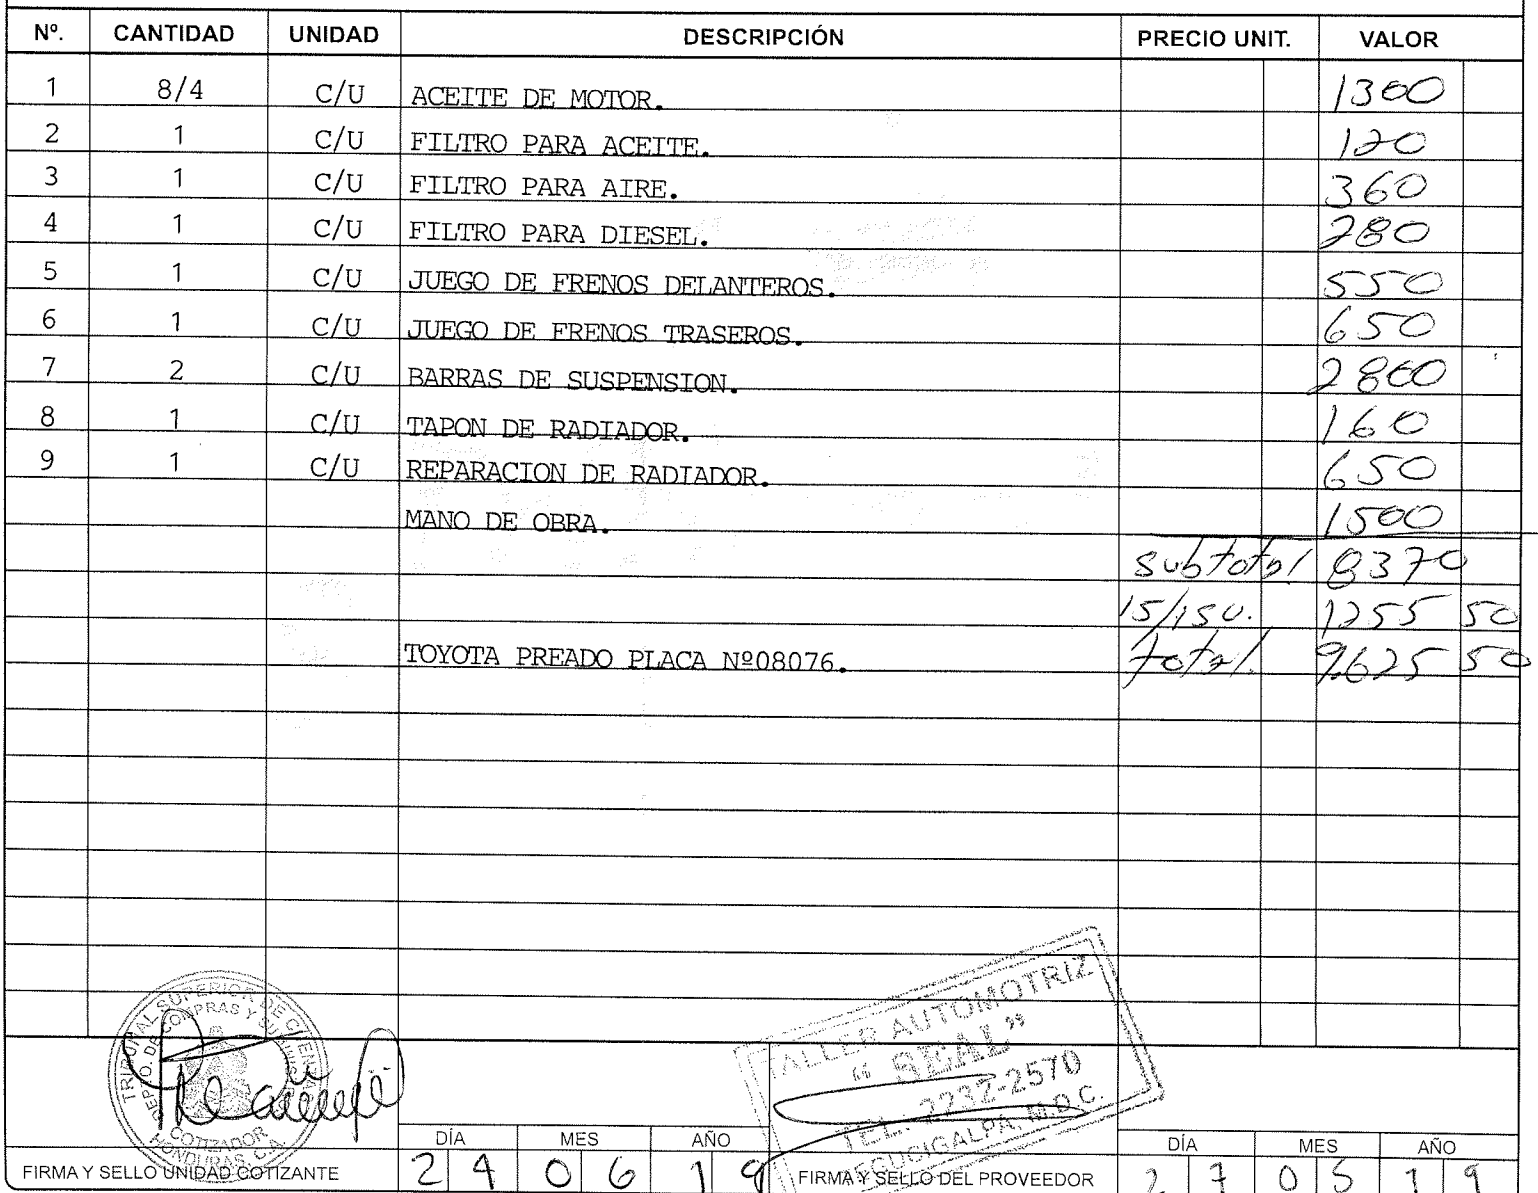 Nº. CANTIDAD UNIDAD DESCRIPCIÓN PRECIO UNIT. VALOR
1 8/4 C/U ACEITE DE MOTOR. 1300
2 1 C/U FILTRO PARA ACEITE. 120
3 1 C/U FILTRO PARA AIRE. 360
4 1 C/U FILTRO PARA DIESEL. 280
5 1 C/U JUEGO DE FRENOS DELANTEROS. 550
6 1 C/U JUEGO DE FRENOS TRASEROS. 650
7 2 C/U BARRAS DE SUSPENSION. 2800
8 1 C/U TAPON DE RADIADOR. 160
9 1 C/U REPARACION DE RADIADOR. 650
MANO DE OBRA. 1500
subtotal 8370
15/ISV. 1255 50
TOYOTA PREADO PLACA Nº08076. total. 9.625 50
TRIBUNAL SUPERIOR DE CUENTAS
DEPTO. DE COMPRAS Y SUMINISTROS
COTIZADOR
HONDURAS, C.A.
TALLER AUTOMOTRIZ
“ REAL ”
TEL. 2232-2570
TEGUCIGALPA, M.D.C.
DÍA MES AÑO DÍA MES AÑO
FIRMA Y SELLO UNIDAD COTIZANTE 24 06 19 FIRMA Y SELLO DEL PROVEEDOR 27 05 19